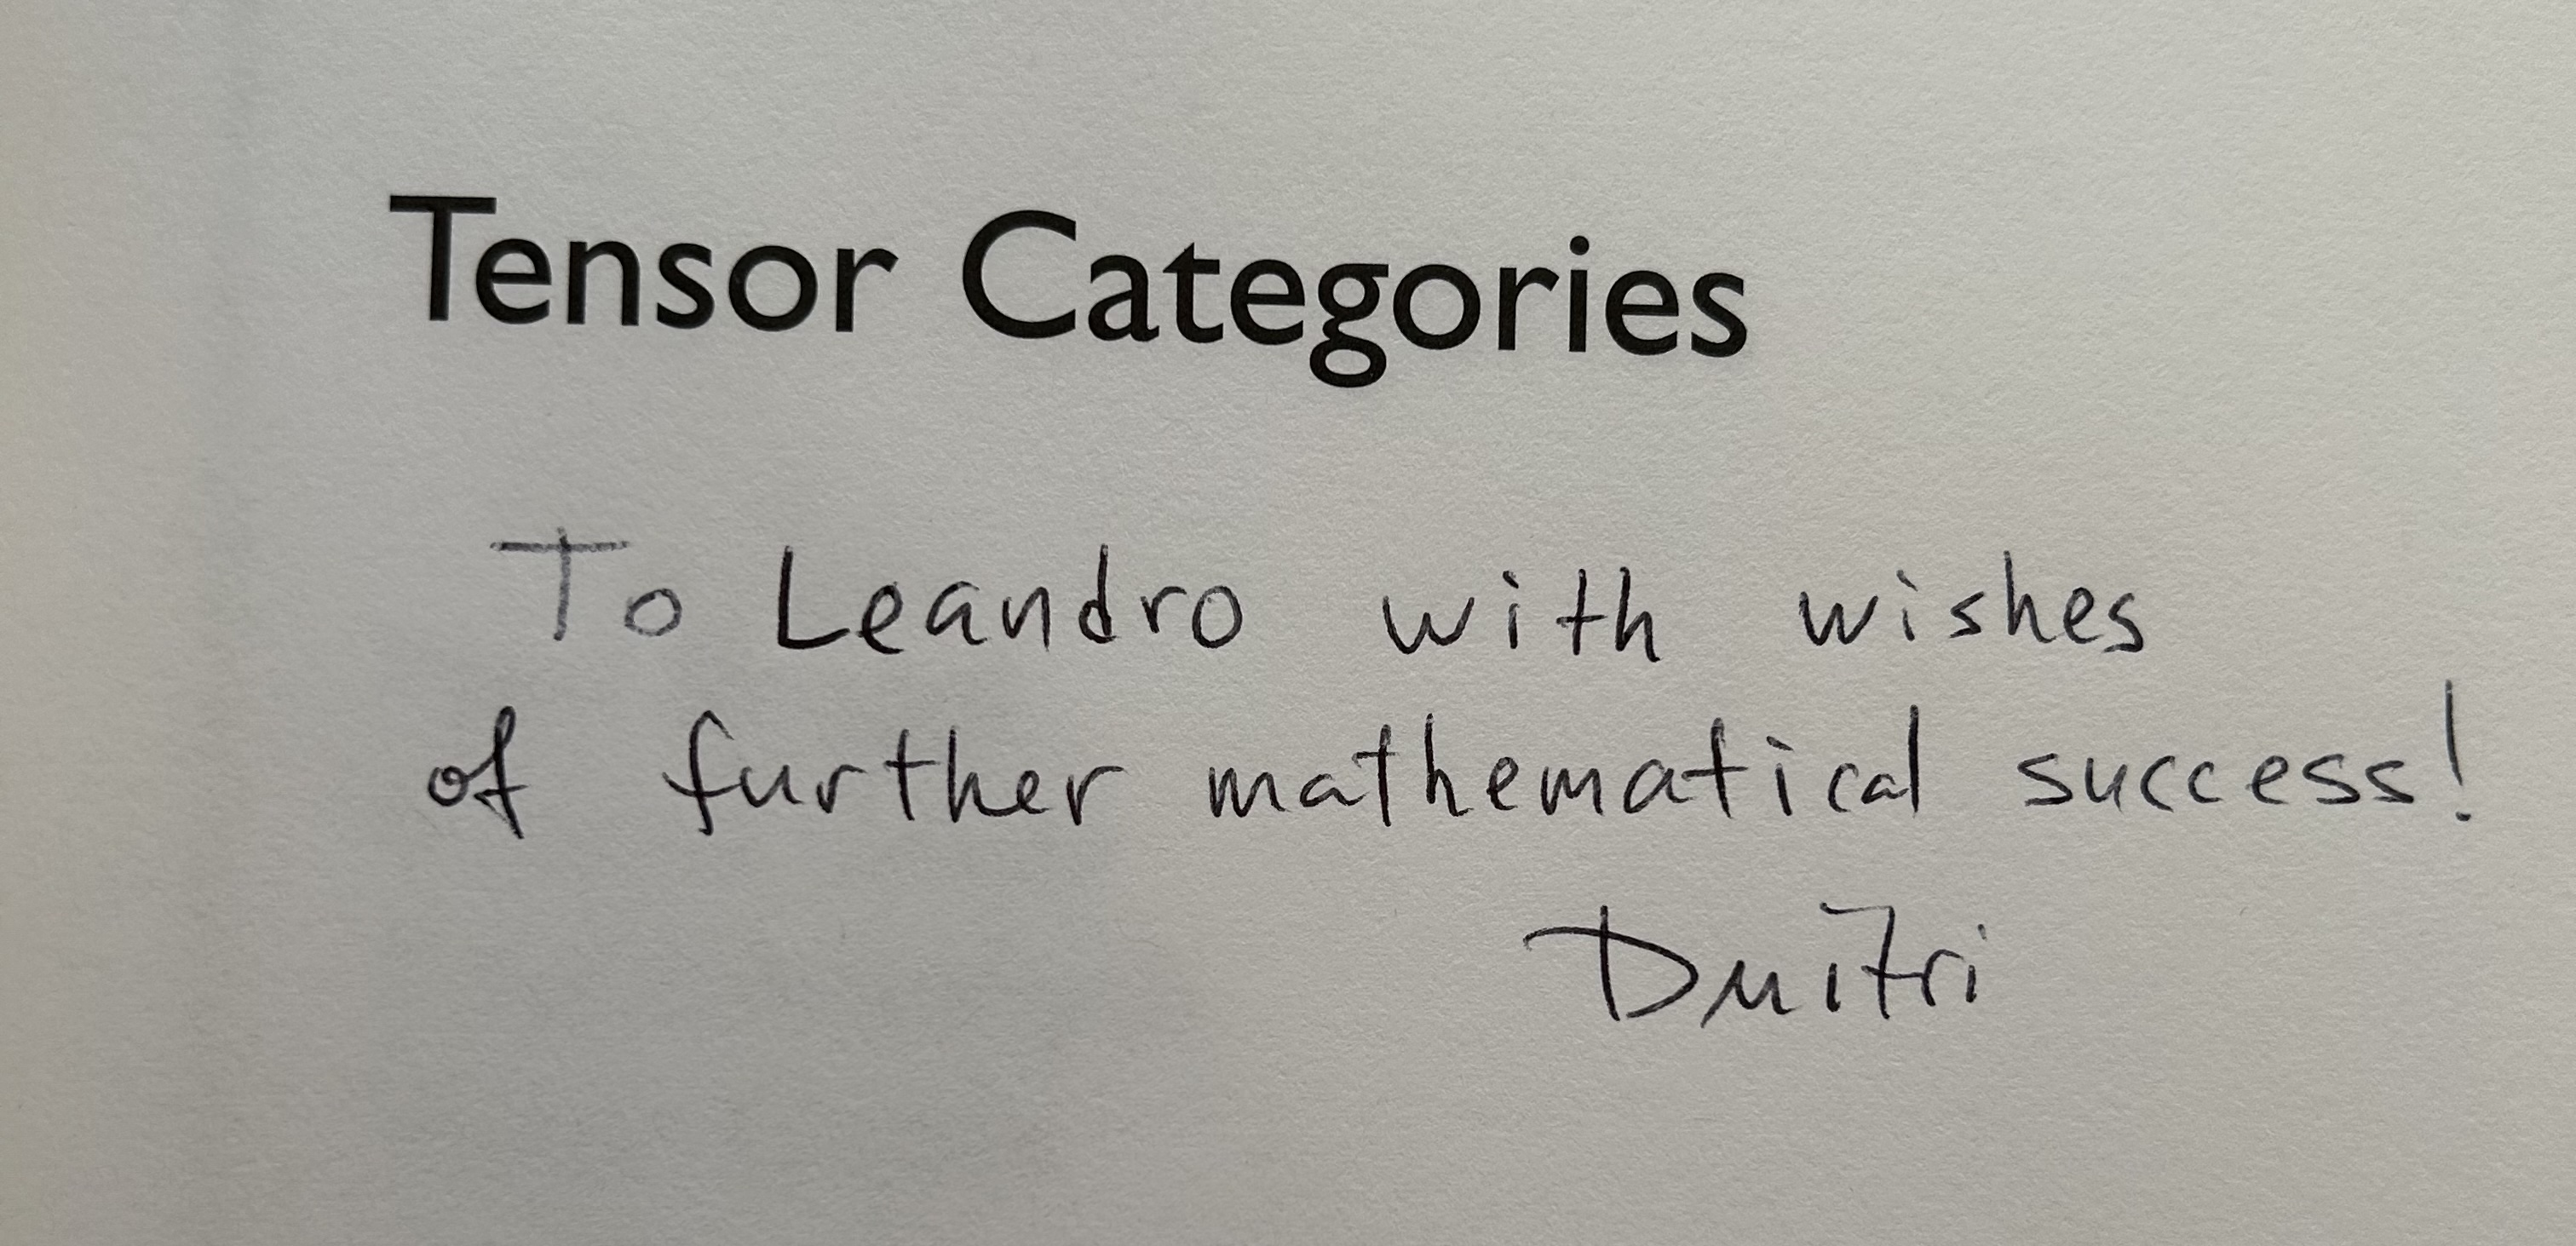 Tensor Categories
To Leandro with wishes
of further mathematical success!
Dmitri